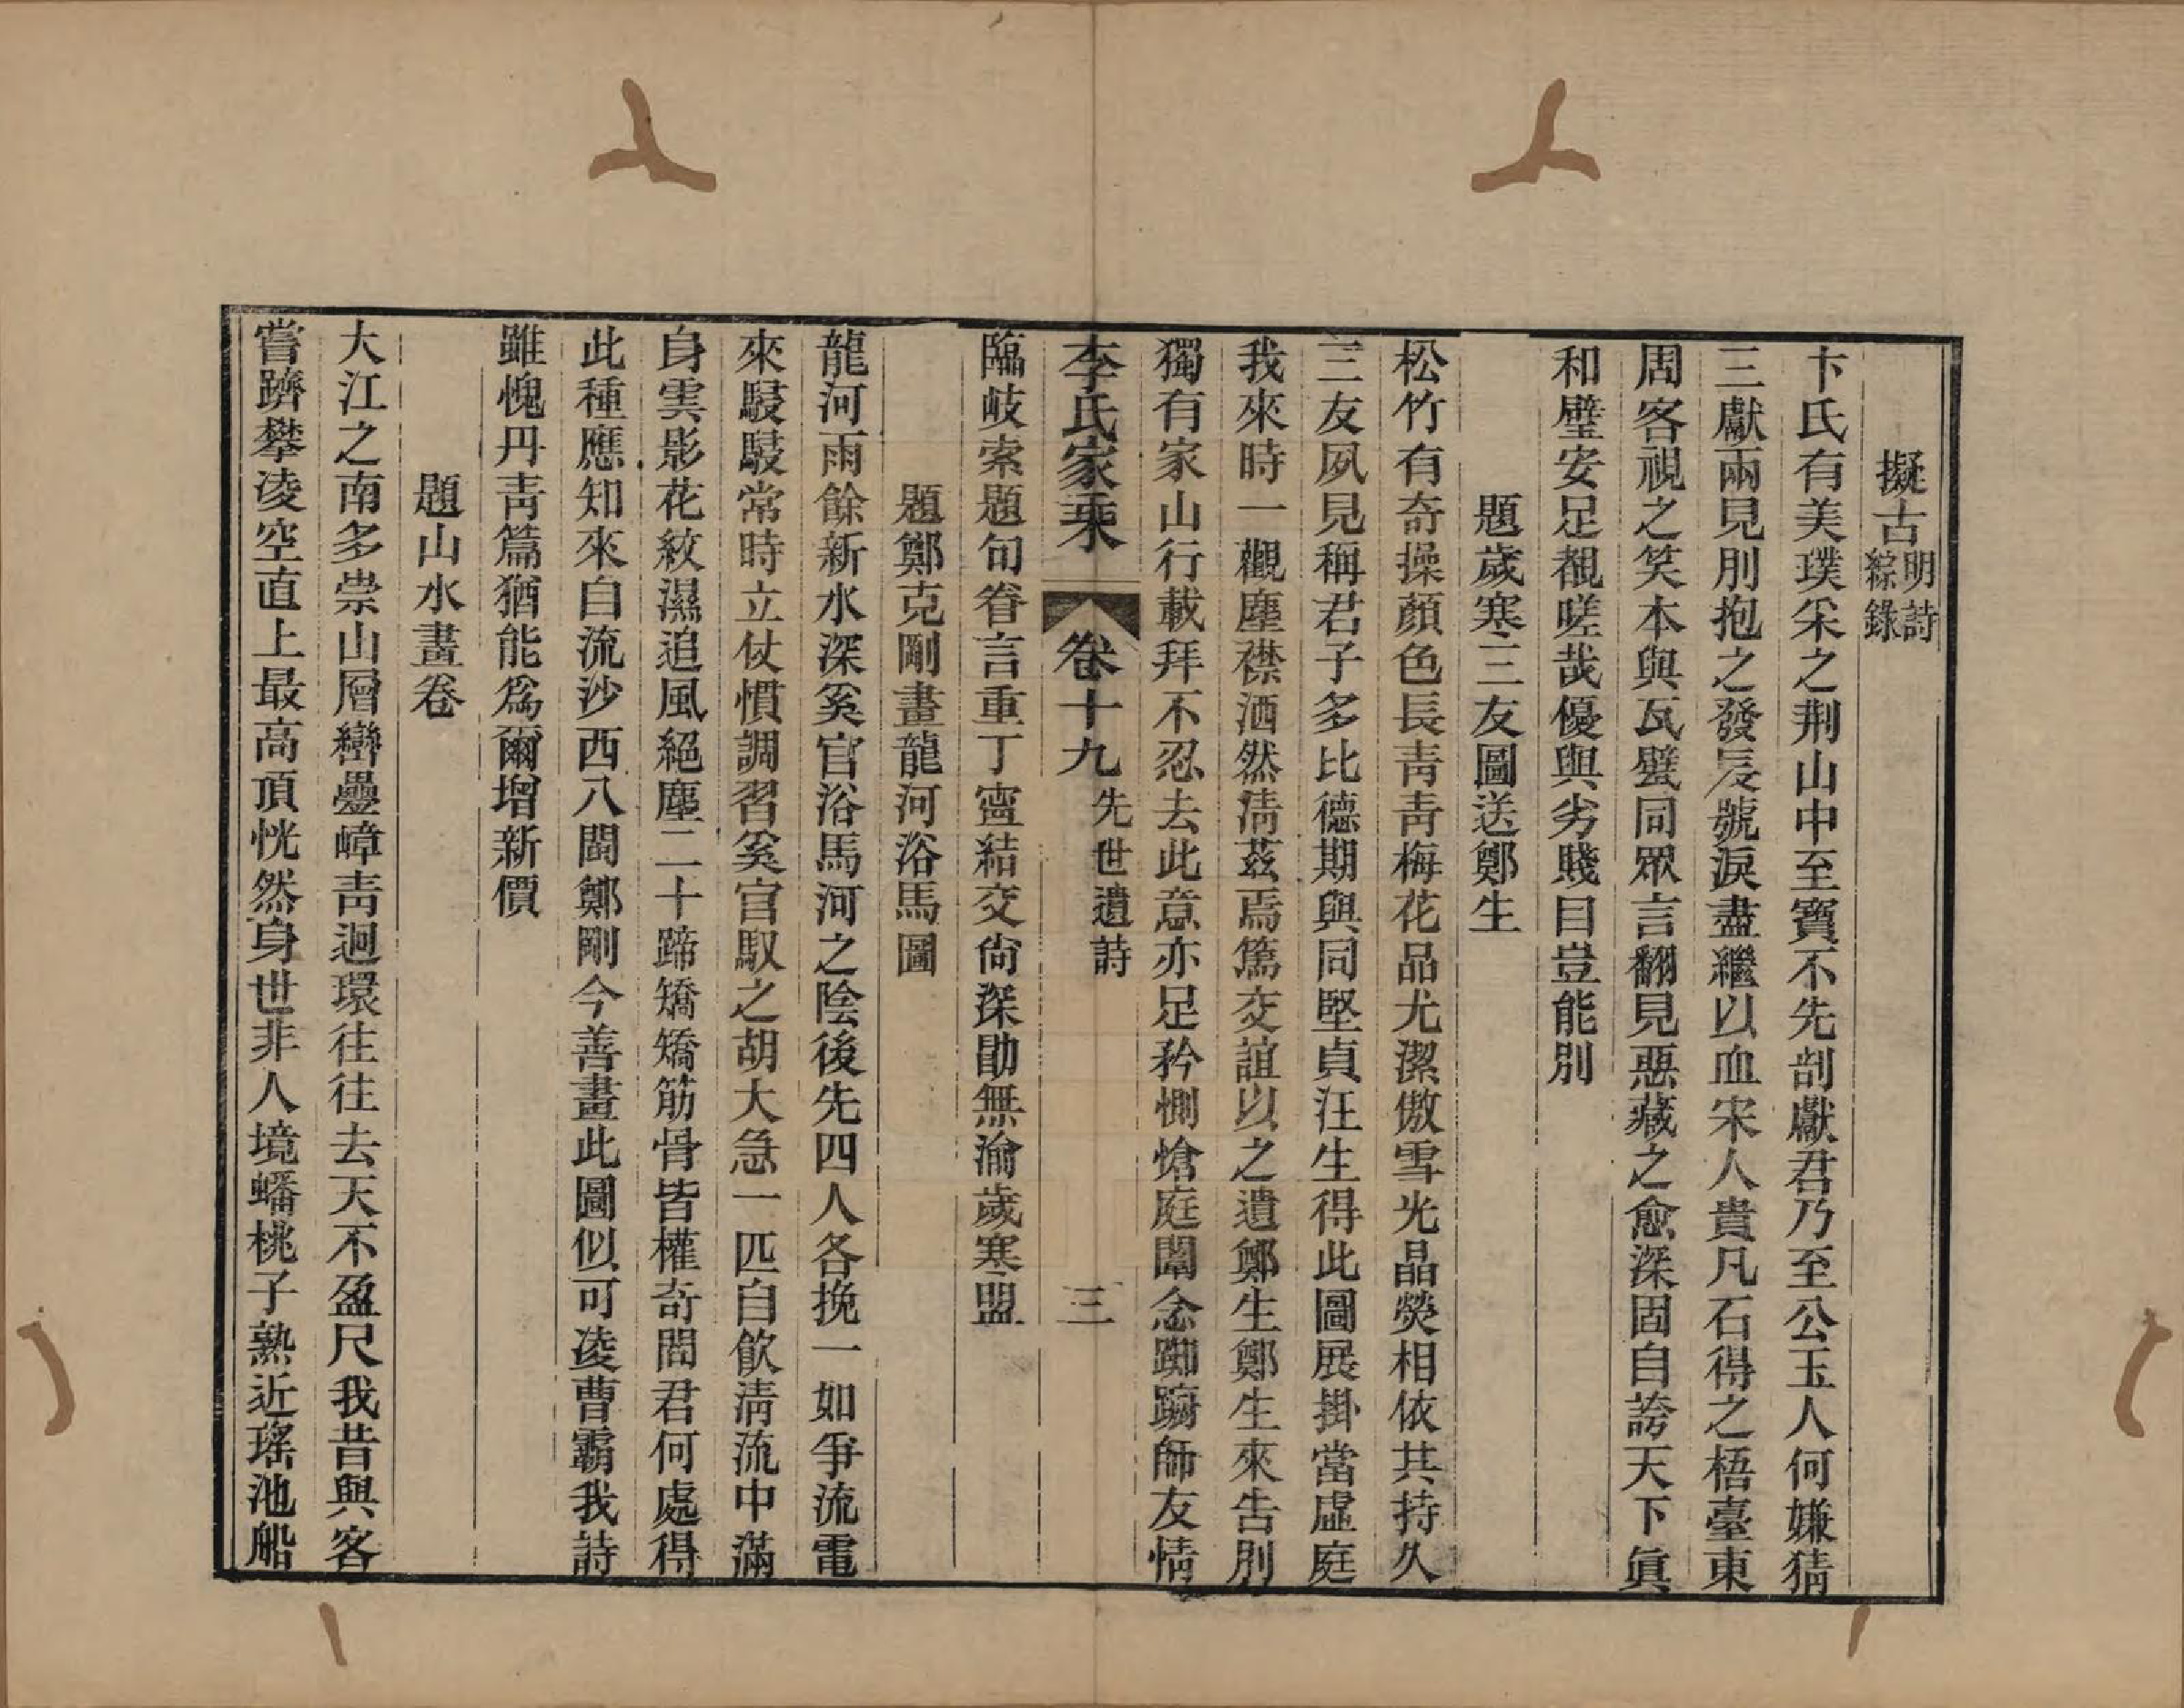 擬古明詩綜錄
卞氏有美璞采之荆山中至寶不先剖獻君乃至公玉人何嫌猜
三獻兩見刖抱之發長號淚盡繼以血宋人貴凡石得之梧臺東
周客視之笑本與瓦甓同眾言翻見惡藏之愈深固自誇天下眞
和璧安足覩嗟哉優與劣賤目豈能別
題歲寒三友圖送鄭生
松竹有奇操顏色長靑靑梅花品尤潔傲雪光晶熒相依共持久
三友夙見稱君子多比德期與同堅貞汪生得此圖展掛當虛庭
我來時一觀塵襟洒然淸茲焉篤交誼以之遺鄭生鄭生來告別
獨有家山行載拜不忍去此意亦足矜惻愴庭闈念踟躕師友情
李氏家乘 卷十九 先世遺詩 三
臨岐索題句眷言重丁寧結交尙深勖無渝歲寒盟
題鄭克剛畫龍河浴馬圖
龍河雨餘新水深奚官浴馬河之陰後先四人各挽一如爭流電
來駸駸常時立仗慣調習奚官馭之胡大急一匹自飮淸流中滿
身雲影花紋濕追風絕塵二十蹄矯矯筋骨皆權奇問君何處得
此種應知來自流沙西八閩鄭剛今善畫此圖似可凌曹霸我詩
雖愧丹靑篇猶能爲爾增新價
題山水畫卷
大江之南多崇山層巒疊嶂靑迴環往往去天不盈尺我昔與客
嘗躋攀凌空直上最高頂恍然身世非人境蟠桃子熟近瑤池船